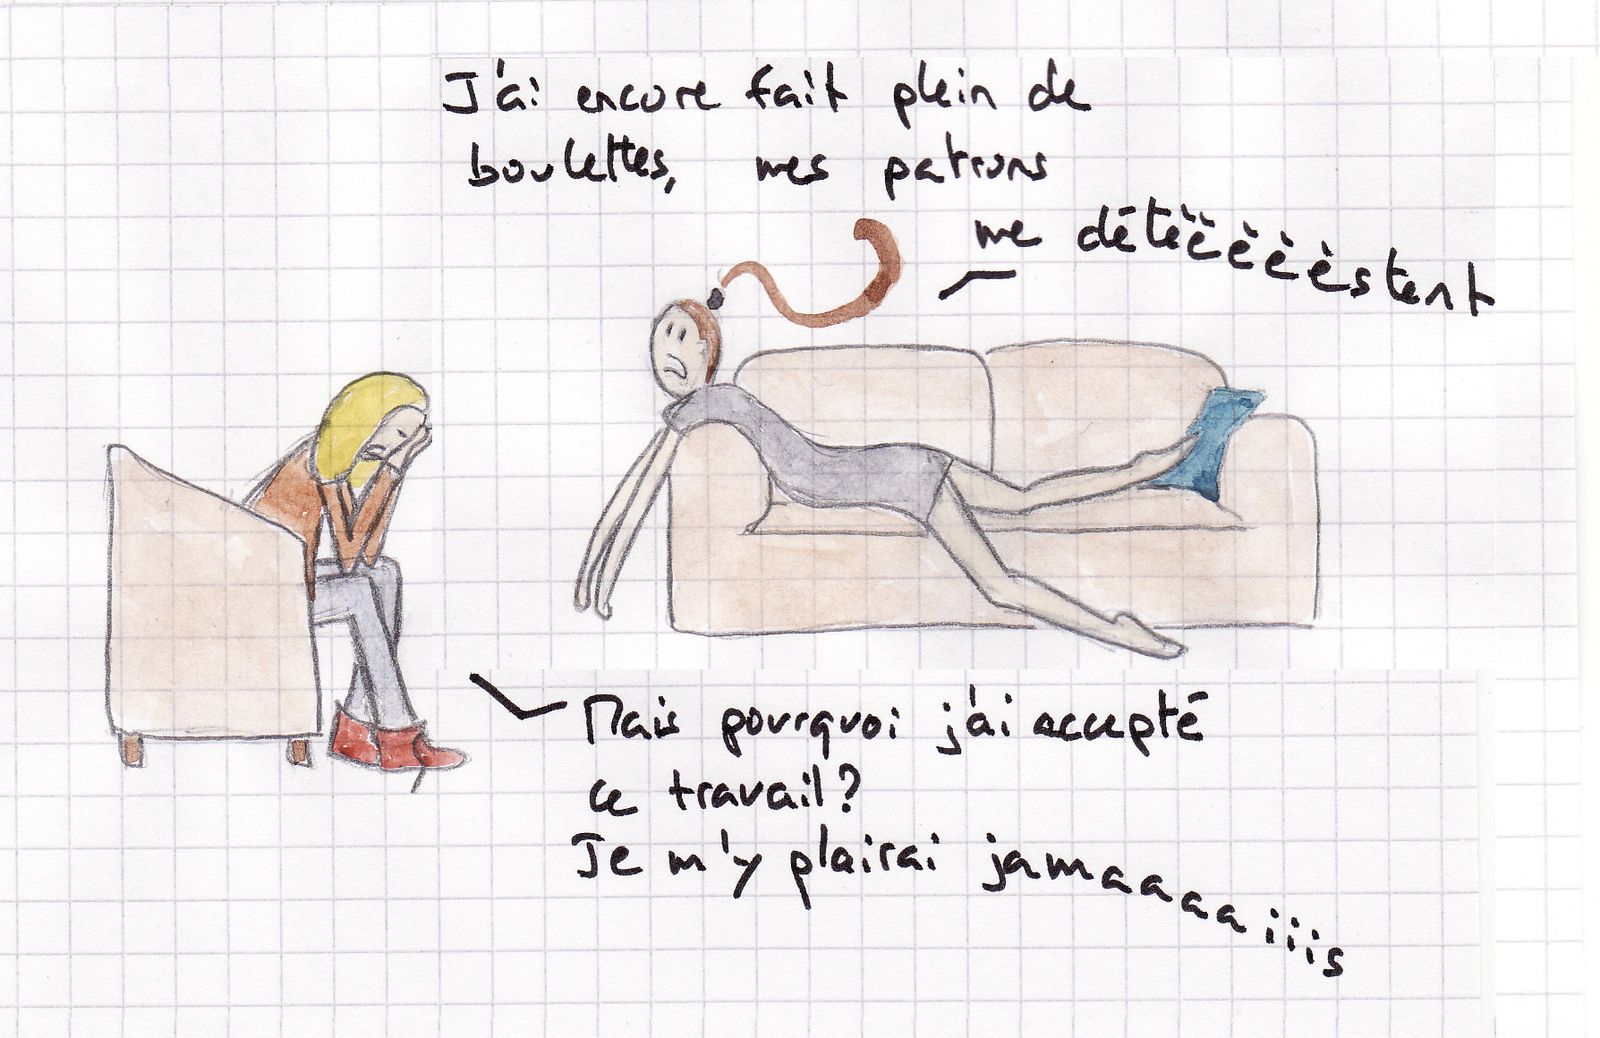 J'ai encore fait plein de
boulettes, mes patrons
me détèèèèèstent
Mais pourquoi j'ai accepté
ce travail?
Je m'y plairai jamaaaaaiiis